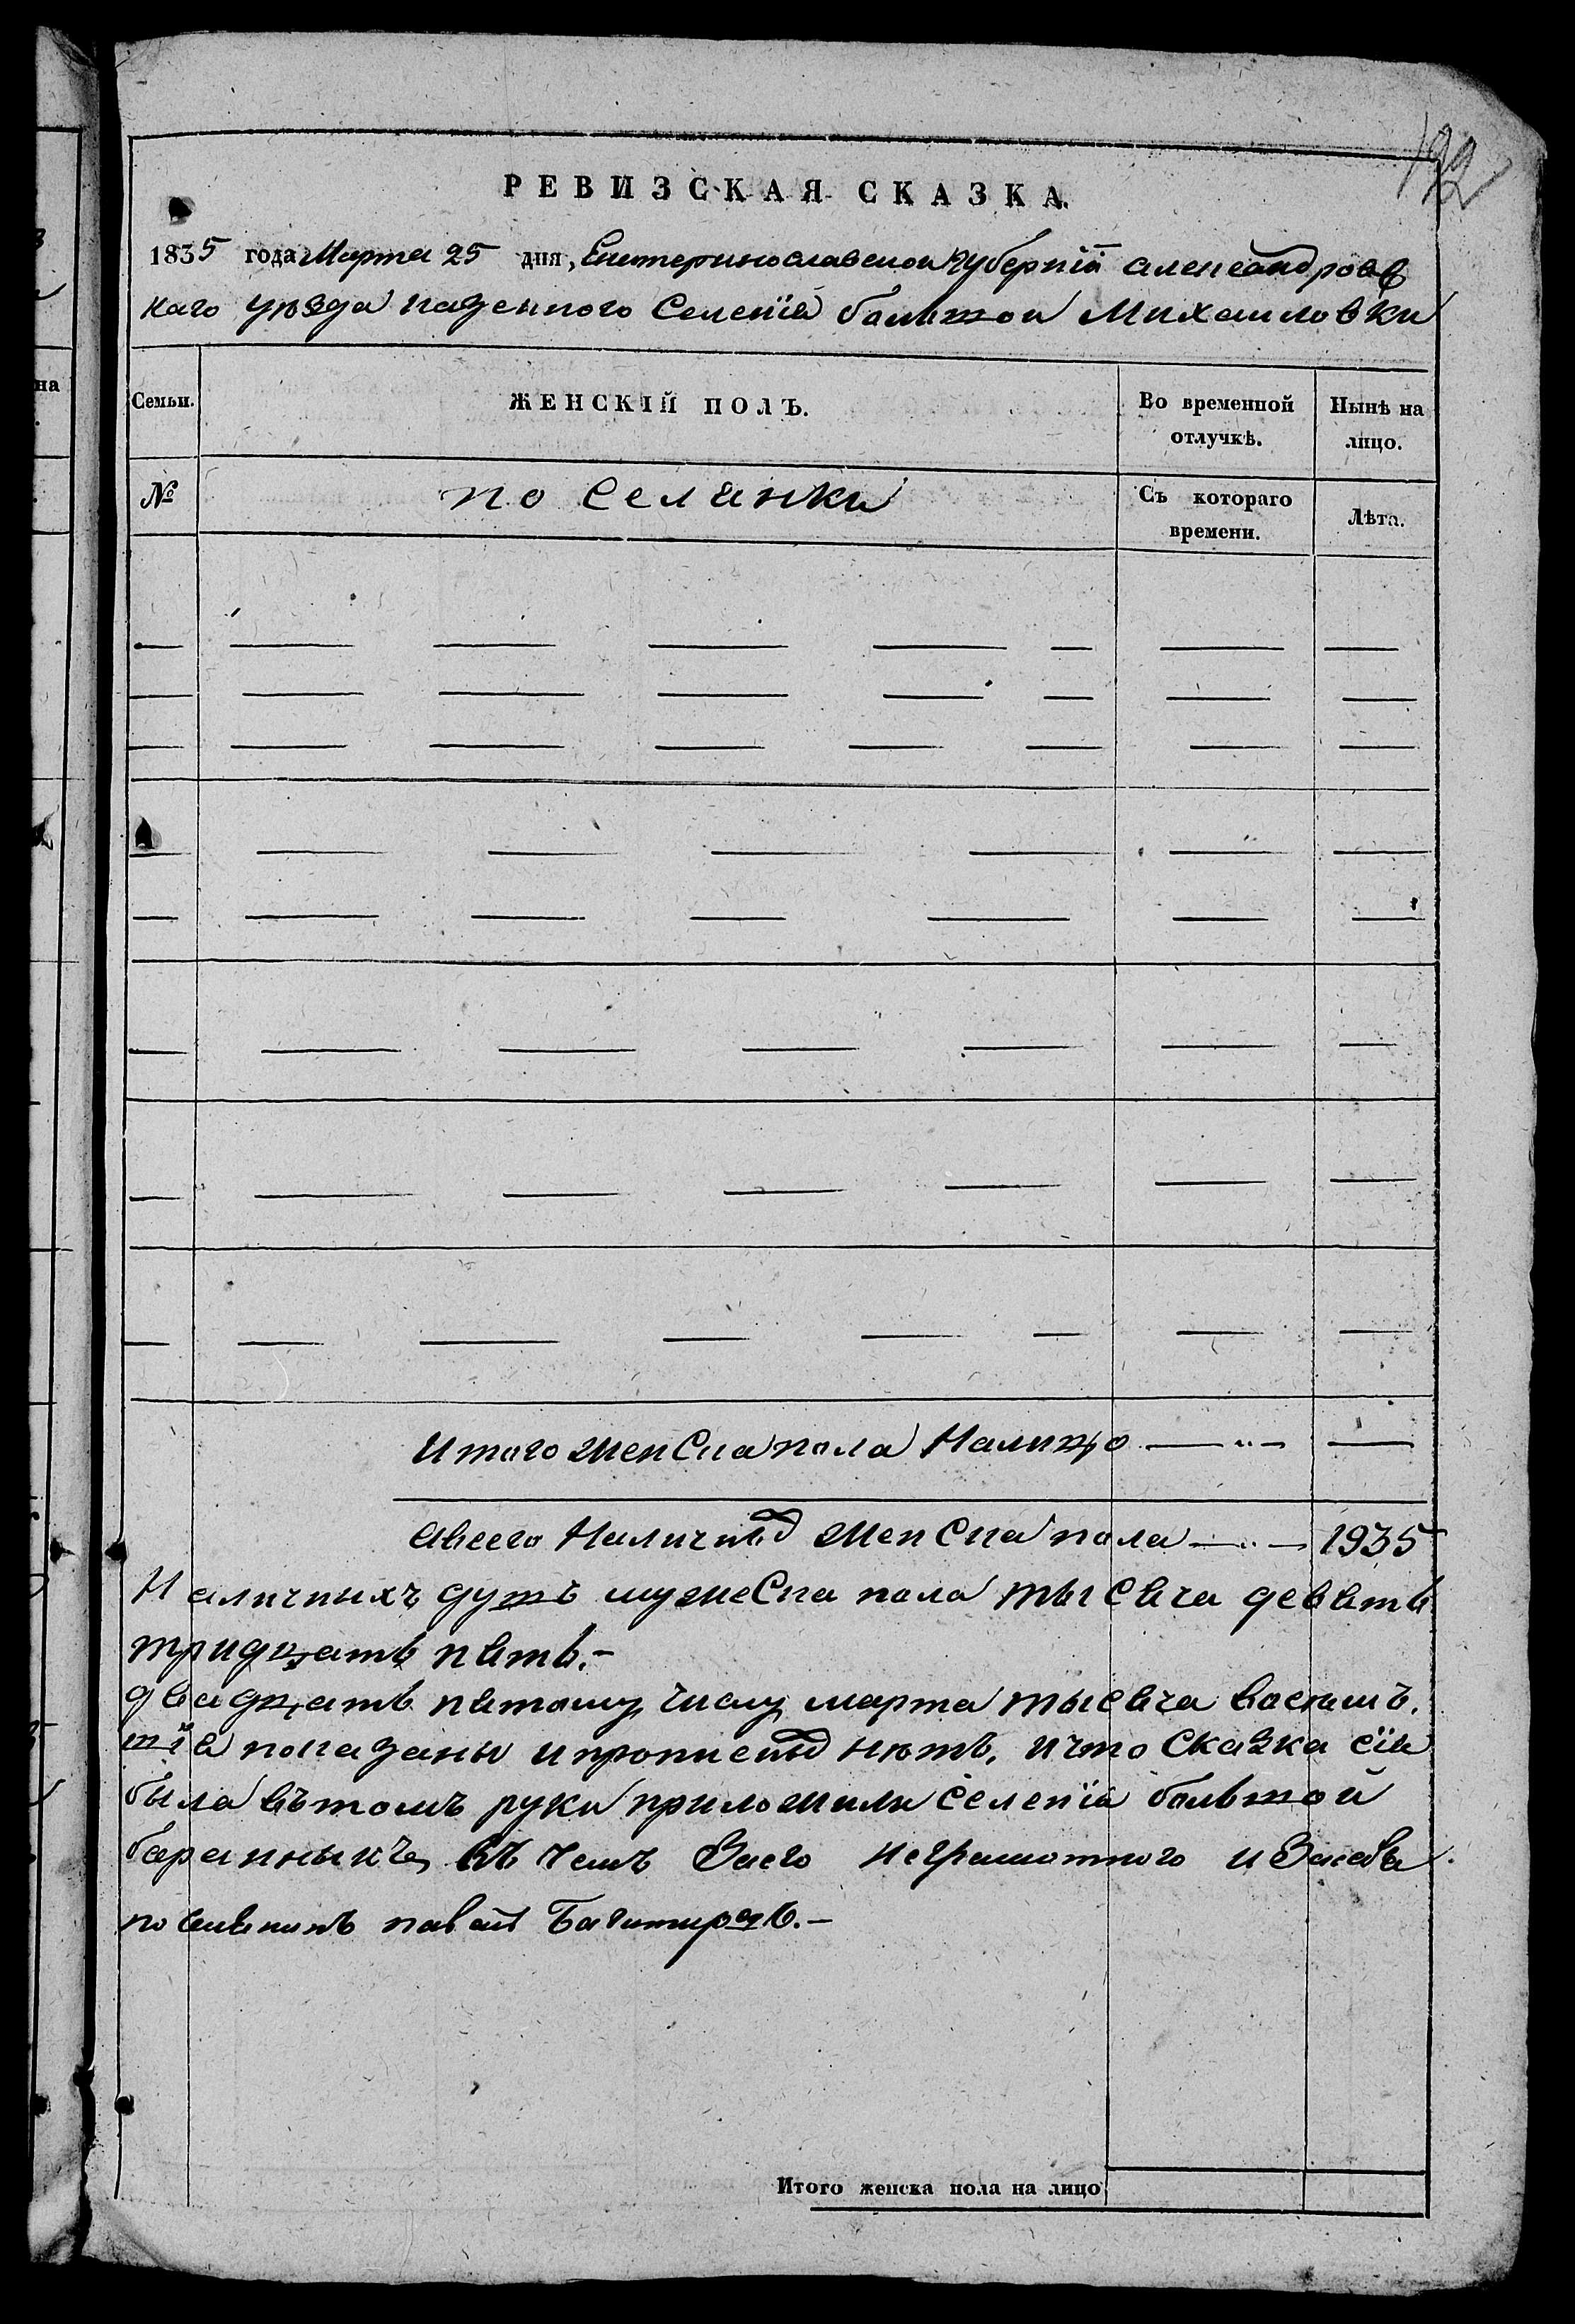 192
РЕВИЗСКАЯ СКАЗКА.
1835 года Марта 25 дня, Екатеринославской губерніи александровс
каго уѣзда казенного Селенія большой Михаиловки
на
Семьи. ЖЕНСКІЙ ПОЛЪ. Во временной отлучкѣ. Нынѣ на лицо.
№ поселянки Съ котораго времени. Лѣта.
Итого женска пола Налицо
авсего Наличныхъ женска пола 1935
Наличныхъ душъ мужеска пола тысяча девять
тридцать пять.-
двадцать пятому числу марта тысяча восемъ.
показаны и прописныхъ нѣтъ, ичто Сказка сія
была вътомъ руки приложили селенія большой
въ чемъ Заего неграмотного иЗасебя
.-
Итого женска пола на лицо